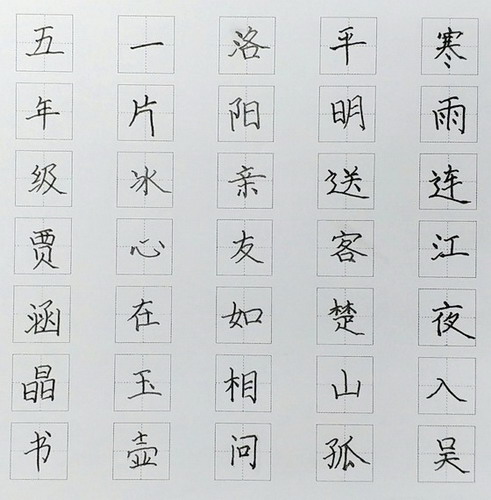 寒雨连江夜入吴
平明送客楚山孤
洛阳亲友如相问
一片冰心在玉壶
五年级贾涵晶书